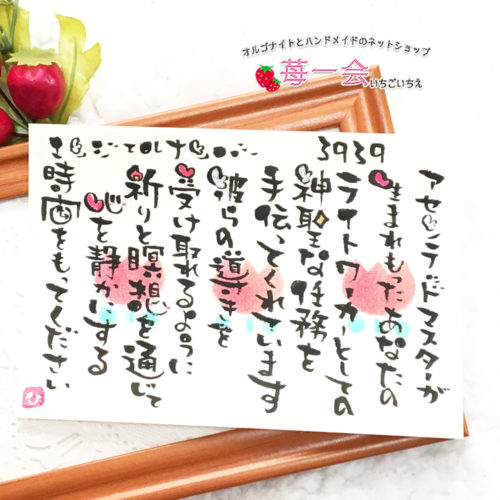 オルゴナイトとハンドメイドのネットショップ
苺一会
いちごいちえ
エンジェルナンバー
3939
アセンデッドマスターが
生まれもったあなたの
ライトワーカーとしての
神聖な任務を
手伝ってくれています
彼らの導きを
受け取れるように
祈りと瞑想を通じて
心を静かにする
時間をもってください